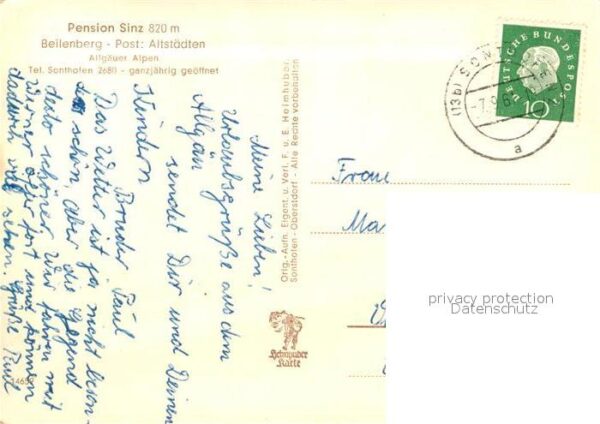 Pension Sinz 820 m
Beilenberg - Post: Altstädten
Allgäuer Alpen
Tel. Sonthofen 2680 - ganzjährig geöffnet
Meine Lieben!
Urlaubsgrüße aus dem
Allgäu sendet Dir und Deinen
Kindern
Bruder Paul
Das Wetter ist ja nicht beson-
ders schön, aber die Gegend
desto schöner. Wir fahren mit
Werner oefer fort und können
dadurch viel sehen. Grüße Paul
Orig.-Aufn. Eigent. u. Verl. F. u. E. Heimhuber,
Sonthofen - Oberstdorf - Alle Rechte vorbehalten
Heimhuber
Karte
DEUTSCHE BUNDESPOST
10
(13b) SONTHOFEN
-7.9.6
a
Frau
Ma
privacy protection
Datenschutz